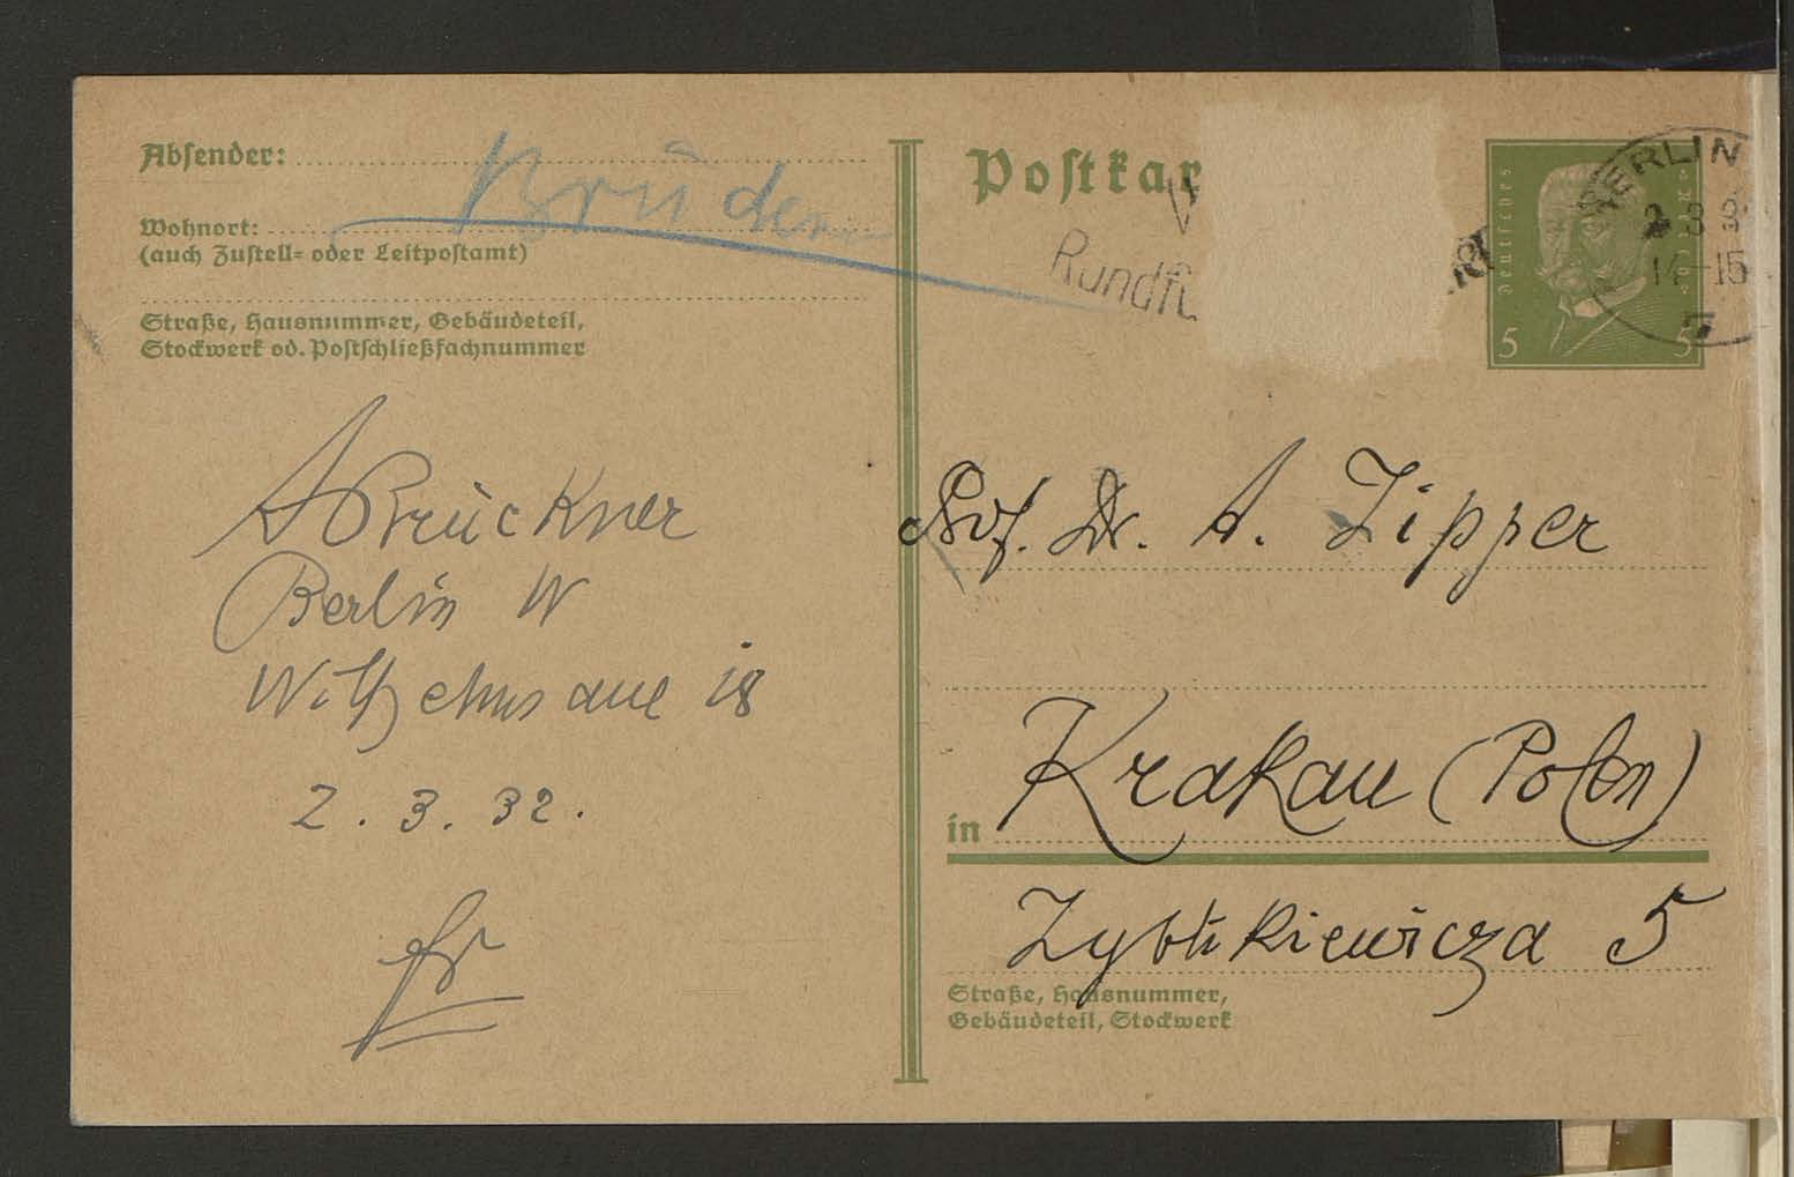 Absender:
Wohnort:
(auch Zustell- oder Leitpostamt)
Straße, Hausnummer, Gebäudeteil,
Stockwerk od. Postschließfachnummer
ABrückner
Berlin W
Wilhelmsaue 18
2. 3. 32.
Postkar
Rundfu
deutsches
Reich
5 5
BERLIN
2 3 3
14-15
Prof. Dr. A. Zipper
in Krakau (Polen)
Zyblikiewicza 5
Straße, Hausnummer,
Gebäudeteil, Stockwerk